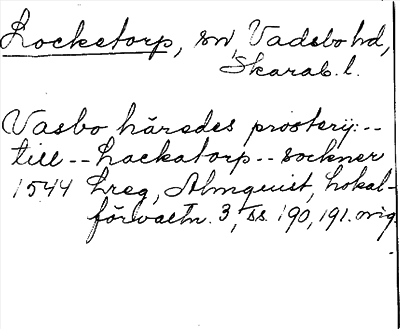 Locketorp, sn, Vadsbo hd,
Skarab. l.
Vasbo häredes prosterij: --
till -- Lockatorp -- sockner
1544 Lreg, Almquist, Lokal-
förvaltn. 3, ss. 190, 191. orig.